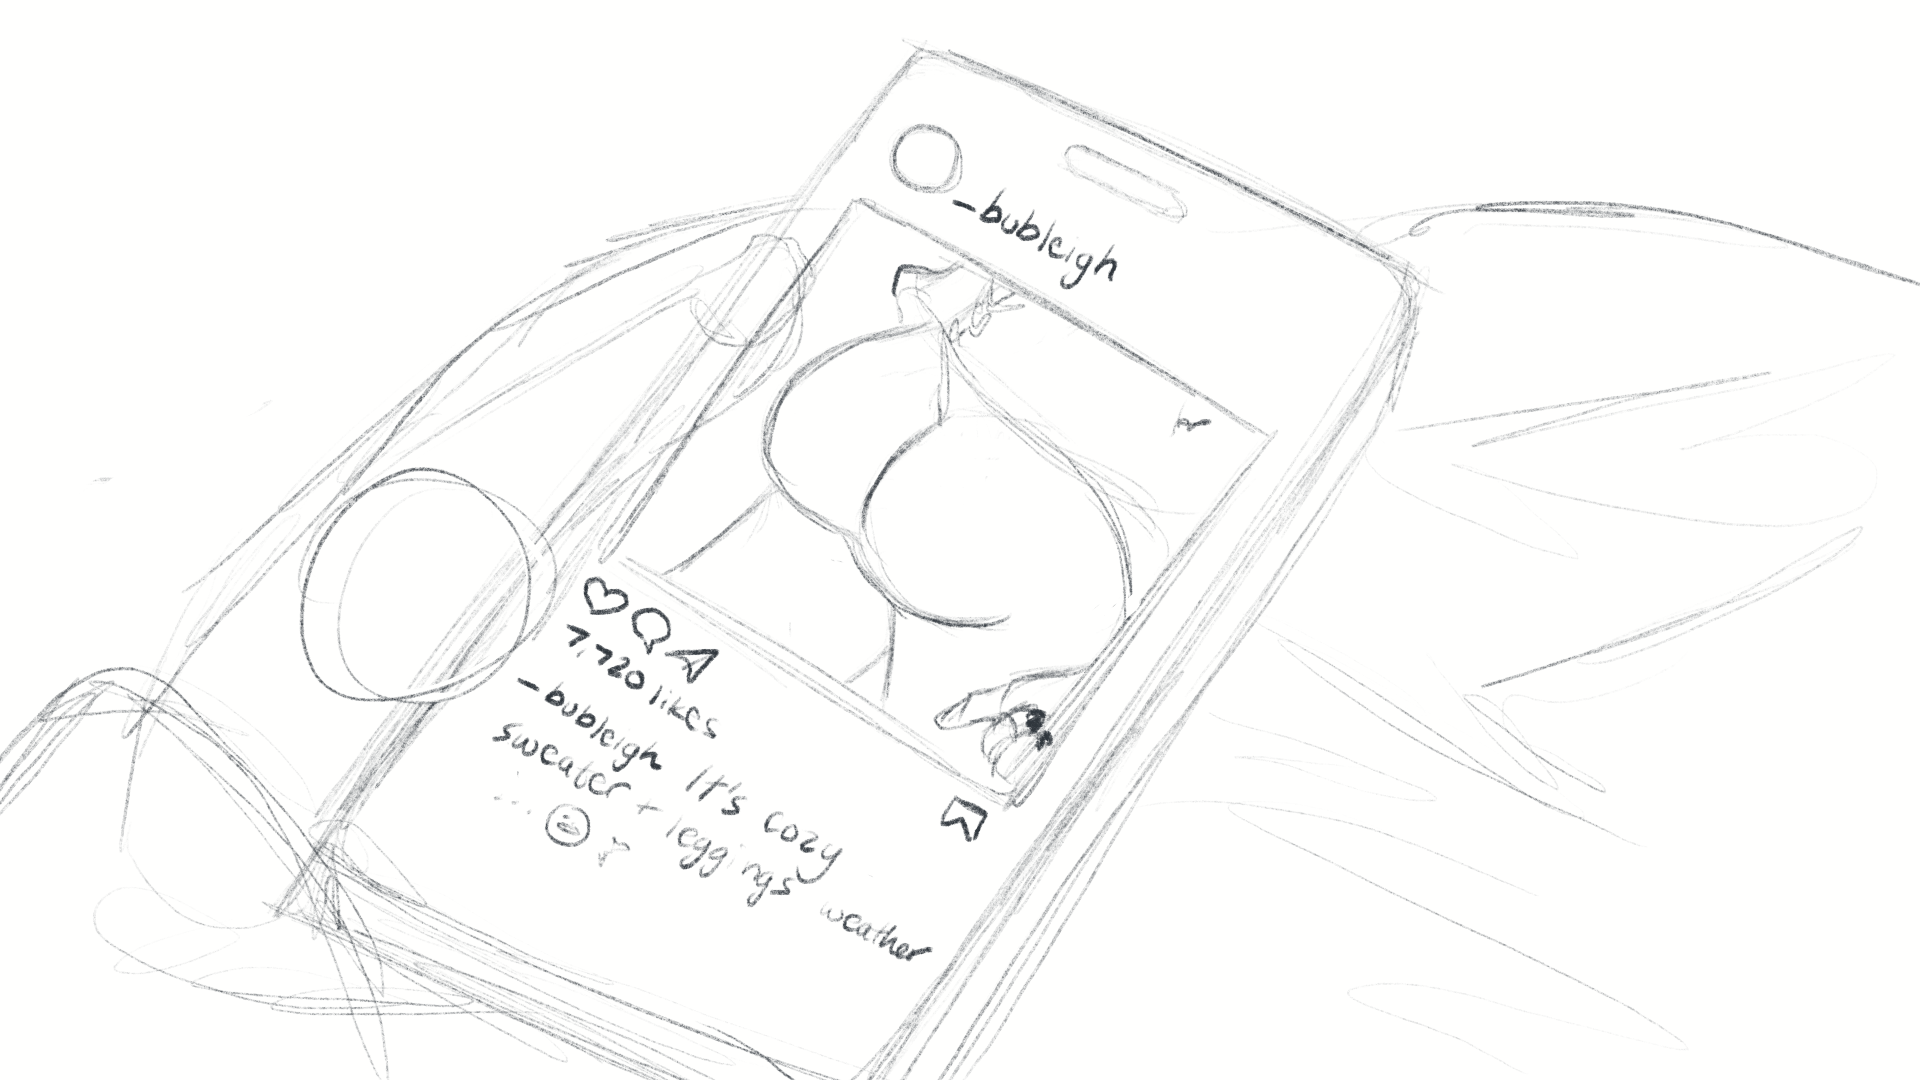 -bubleigh
7,720 likes
-bubleigh It's cozy
sweater + leggings weather
...